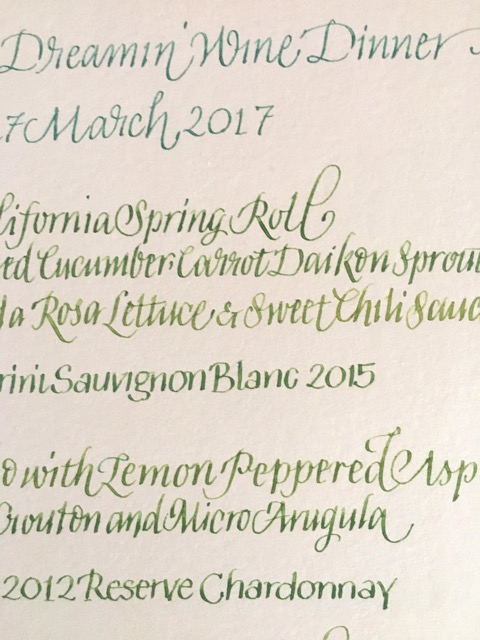 Dreamin' Wine Dinner
7 March 2017
lifornia Spring Roll
ed Cucumber Carrot Daikon Sprout
la Rosa Lettuce & Sweet Chili Sauc
rini Sauvignon Blanc 2015
o with Lemon Peppered Asp
Crouton and Micro Arugula
2012 Reserve Chardonnay